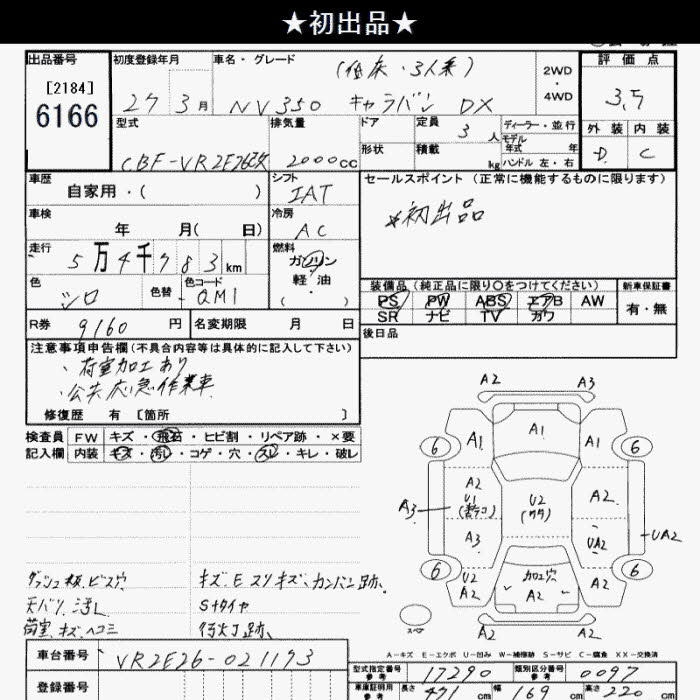 ★初出品★
出品番号 初度登録年月 車名・グレード (低床・3人乗) 2WD ・ 4WD 評価点
[2184]
6166 27 3月 NV350 キャラバン DX 3,5
型式 排気量 ドア 定員 3 人 ディーラー・並行 外装 内装
モデル年式 年
CBF-VR2E26改 2000cc 形状 積載 kg ハンドル 左・右 D C
車歴 シフト セールスポイント(正常に機能するものに限ります)
自家用・( ) IAT
車検 冷房 *初出品
年 月( 日) AC
走行 燃料
5万4千783km ガソリン
軽・油
( ・ )
色 色替 色コード 装備品(純正品に限り○をつけてください) 新車保証書
シロ - QM1 PS PW ABS エアB AW 有・無
SR ナビ TV カワ
R券 9160 円 名変期限 月 日 後日品
注意事項申告欄(不具合内容等は具体的に記入して下さい)
・荷室加工あり
・公共応急作業車
修復歴 有 [箇所 ]
検査員 FW キズ・飛石・ヒビ割・リペア跡・×要
記入欄 内装 キズ・汚レ・コゲ・穴・スレ・キレ・破レ
A2 A3
A1 A1 A1
6 6
A2 U1 U2 A2
A3 A3 UA2 UA2
6 6
U2 A2 加工穴 A2 A2
A2 A2
スペア
ダッシュ板、ビス穴 キズ、E スリキズ、カンバン跡、
天バリ、汚レ Sタイヤ
荷室、キズ、ヘコミ 行灯跡、
A-キズ E-エクボ U-凹み W-補修跡 S-サビ C-腐食 XX-交換済
車台番号 VR2E26-021193
型式指定番号 参考 17290 類別区分番号 参考 0097
登録番号 車庫証明用 参考 長さ 471 cm 幅 169 cm 高さ 220 cm